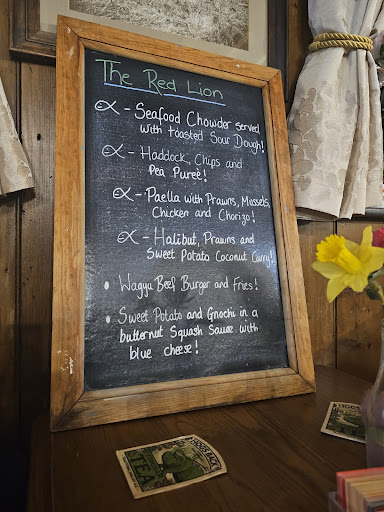 The Red Lion
- Seafood Chowder served
with toasted Sour Dough!
- Haddock, Chips and
Pea Pureé!
- Paella with Prawns, Mussels,
Chicken and Chorizo!
- Halibut, Prawns and
Sweet Potato Coconut Curry!
• Wagyu Beef Burger and Fries!
• Sweet Potato and Gnochi in a
butternut Squash Sauce with
blue cheese!
HOGS BACK
TEA
TEA